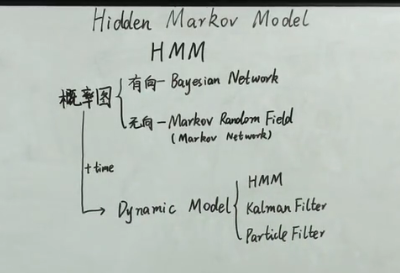 Hidden Markov Model
HMM
概率图
有向-Bayesian Network
无向-Markov Random Field
(Markov Network)
+time
Dynamic Model
HMM
Kalman Filter
Particle Filter